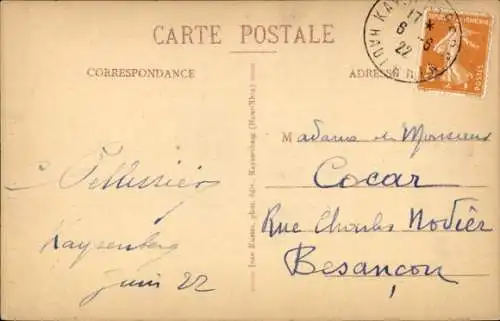 CARTE POSTALE
CORRESPONDANCE
ADRESSE
HAUT
17
6 -6
22
POSTES
Madame et Monsieur
Cocar
Rue Charles Nodier
Besançon
Pellissier
Kaysersberg
Juin 22
phot. édit. Kaysersberg (Haut-Rhin)